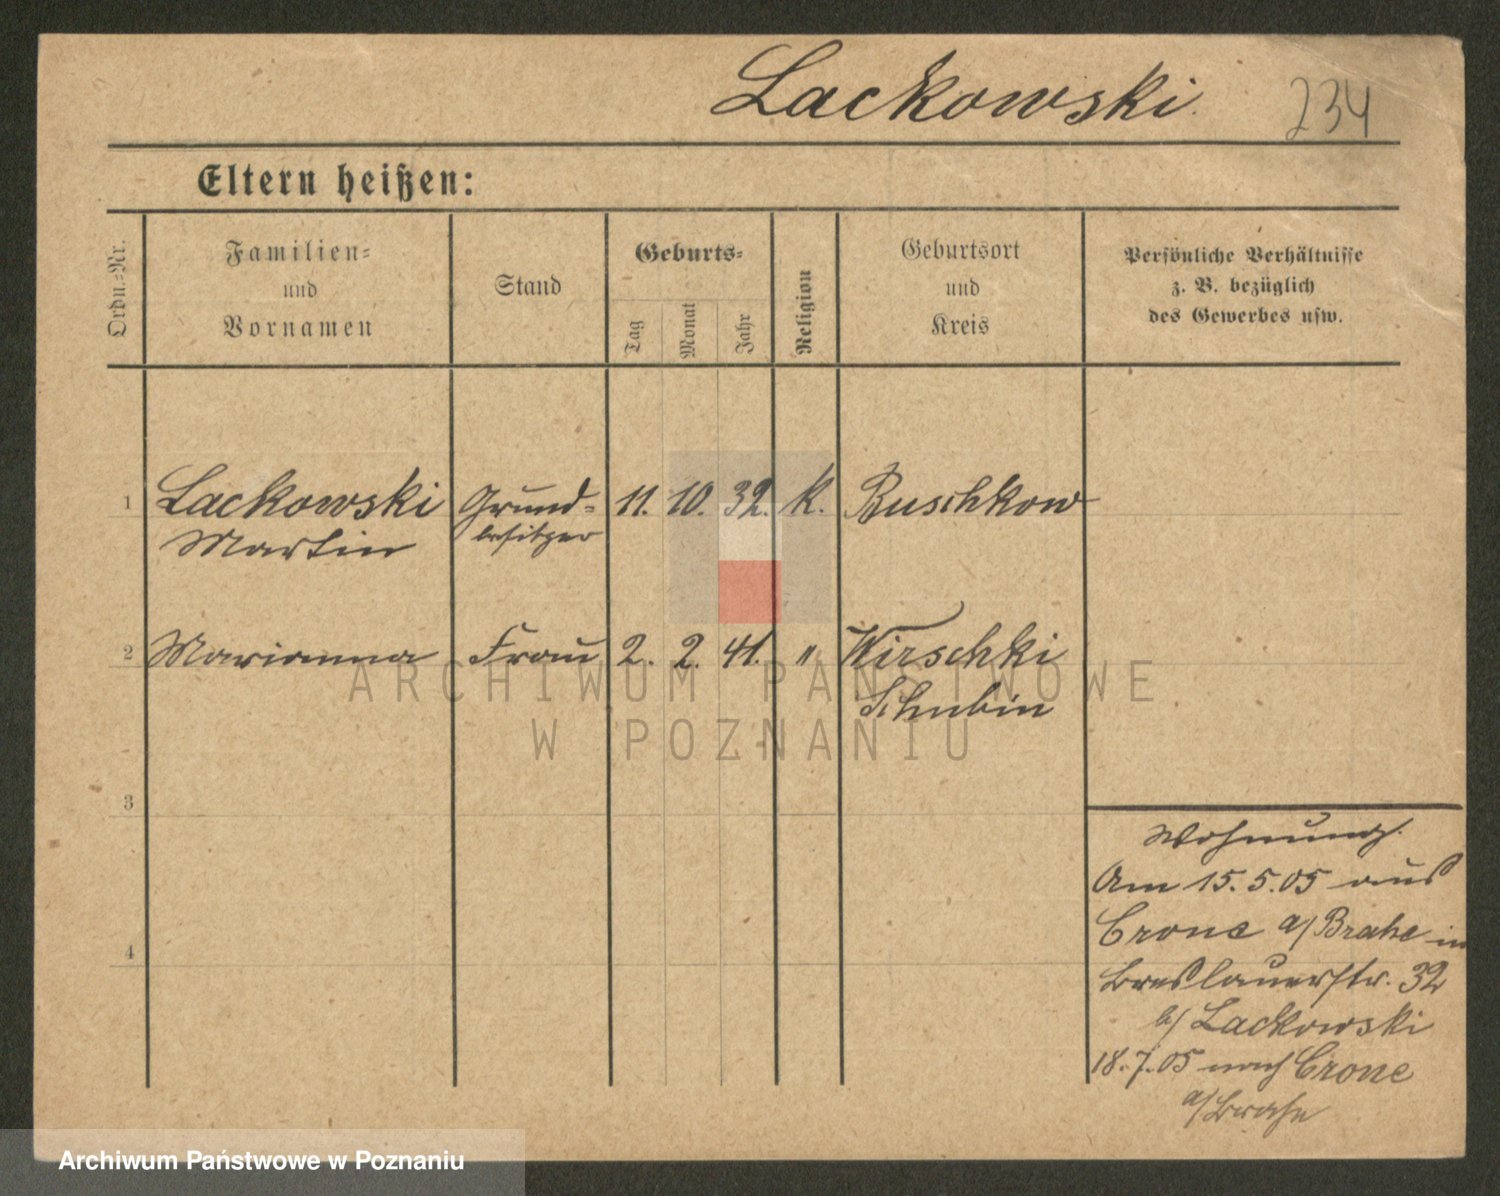 Lackowski
234
Eltern heißen:
Ordn.=Nr.
Familien=
und
Vornamen
Stand
Geburts=
Tag
Monat
Jahr
Religion
Geburtsort
und
Kreis
Persönliche Verhältnisse
z. B. bezüglich
des Gewerbes usw.
1 Lackowski Grund= 11. 10. 32. K. Buschkow
Martin besitzer
2 Marianna Frau 2. 2. 41. " Wirschki
Schubin
3
4
Wohnung.
Am 15.5.05 aus
Crone a/Brahe in
Breslauerstr. 32
b/ Lackowski
18.7.05 nach Crone
a/Brahe
ARCHIWUM PAŃSTWOWE
W POZNANIU
Archiwum Państwowe w Poznaniu